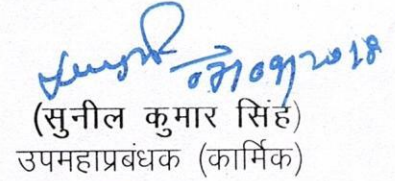 03/09/2018
(सुनील कुमार सिंह)
उपमहाप्रबंधक (कार्मिक)